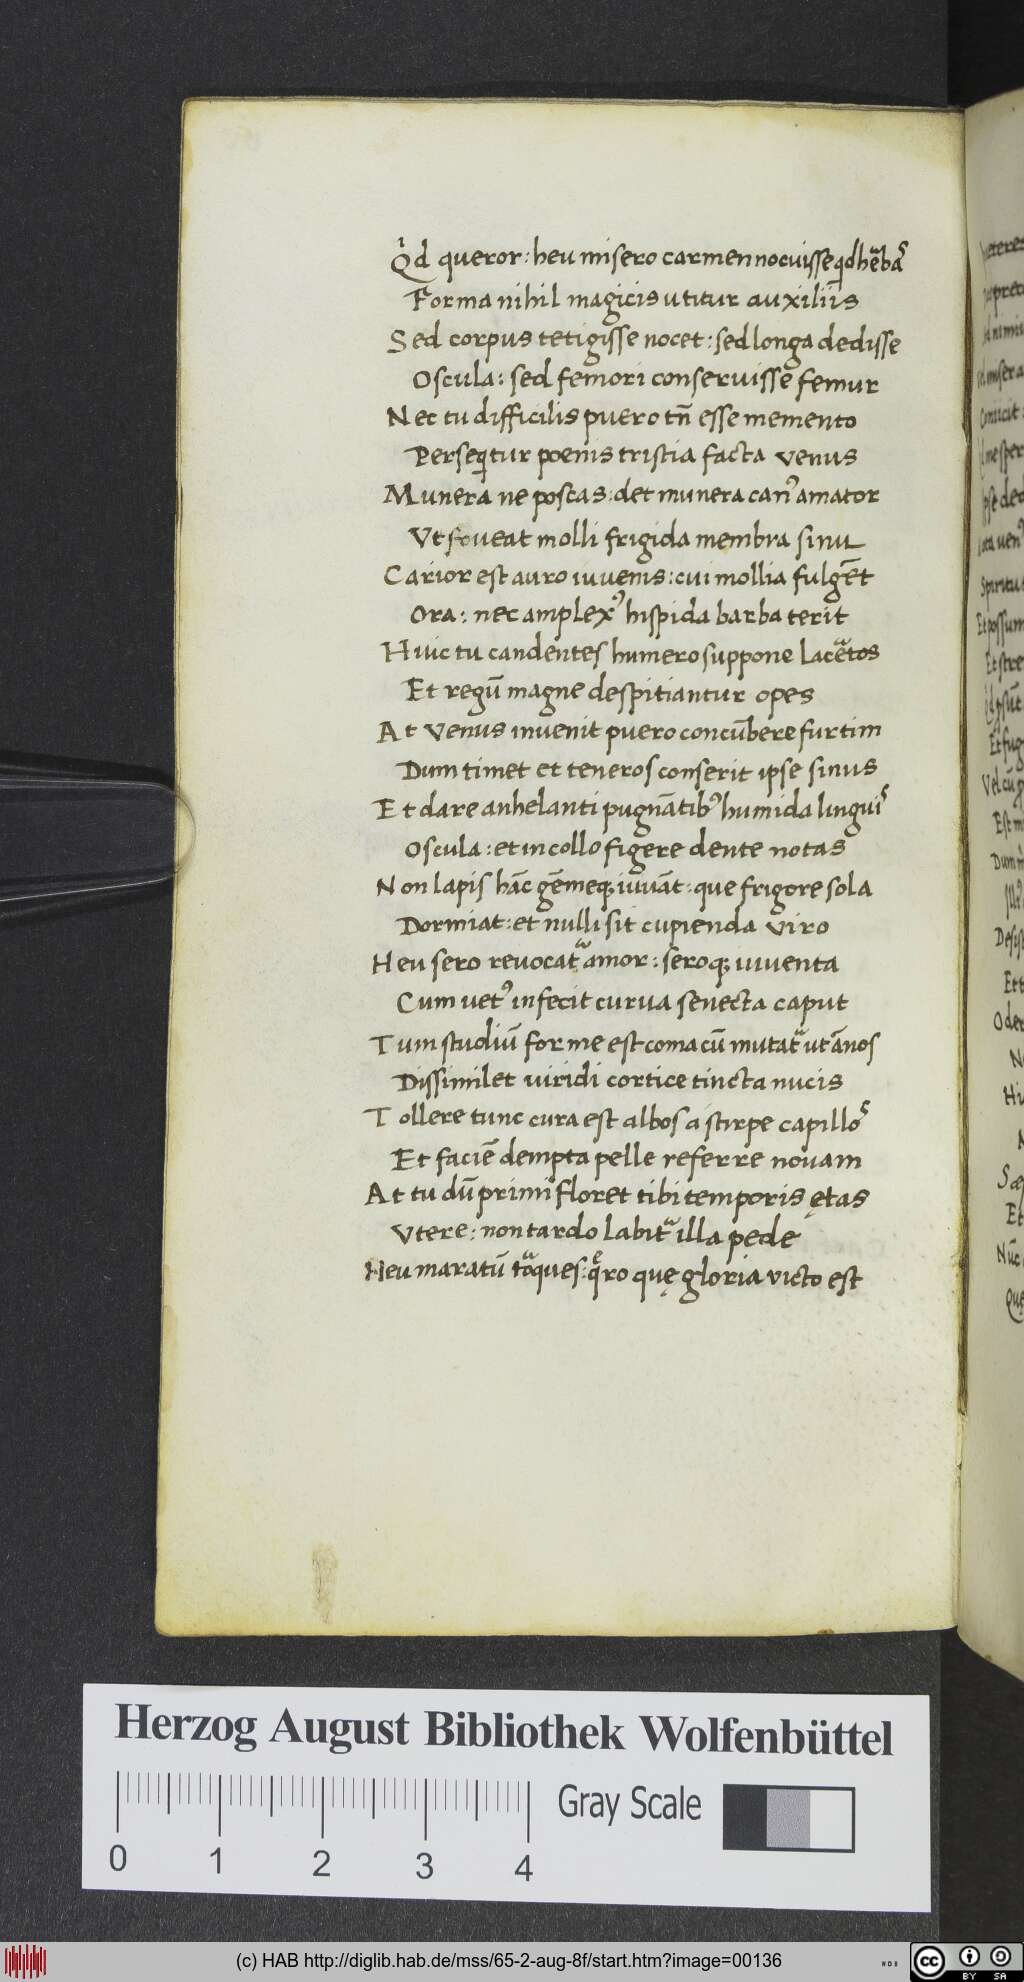 Qͥd queror: heu misero carmen nocuisse qd herbas̉
Forma nihil magicis utitur auxiliis
Sed corpus tetigisse nocet: sed longa dedisse
Oscula: sed femori conseruisse femur
Nec tu difficilis puero tn̄ esse memento
Perseqͥtur poenis tristia facta venus
Munera ne poscas: det munera can᾽ amator
Vt foueat molli frigida membra sinu
Carior est auro iuuenis: cui mollia fulgēt
Ora: nec amplex᾽ hispida barba terit
Huic tu candentes humero suppone lac̃etos
Et regū magne despitiantur opes
At venus inuenit puero concūbere furtim
Dum timet et teneros conserit ipse sinus
Et dare anhelanti pugnātib᾽ humida linguiˢ
Oscula: et in collo figere dente notas
Non lapis hāc gēmeq; iuuāt: que frigore sola
Dormiat: et nulli sit cupienda viro
Heu sero reuocat̃ amor: seroq; iuuenta
Cum uet᾽ infecit curua senecta caput
Tum studiū forme est coma cū mutat̃ ut ānos
Dissimilet viridi cortice tincta nucis
Tollere tunc cura est albos a stirpe capilloˢ
Et faciē dempta pelle referre nouam
At tu dū primi floret tibi temporis ętas
Vtere: non tardo labit̃ illa pede
Neu maratū toͣques: qͤro quę gloria victo est
Herzog August Bibliothek Wolfenbüttel
Gray Scale
0 1 2 3 4
(c) HAB http://diglib.hab.de/mss/65-2-aug-8f/start.htm?image=00136
WDB
cc BY SA